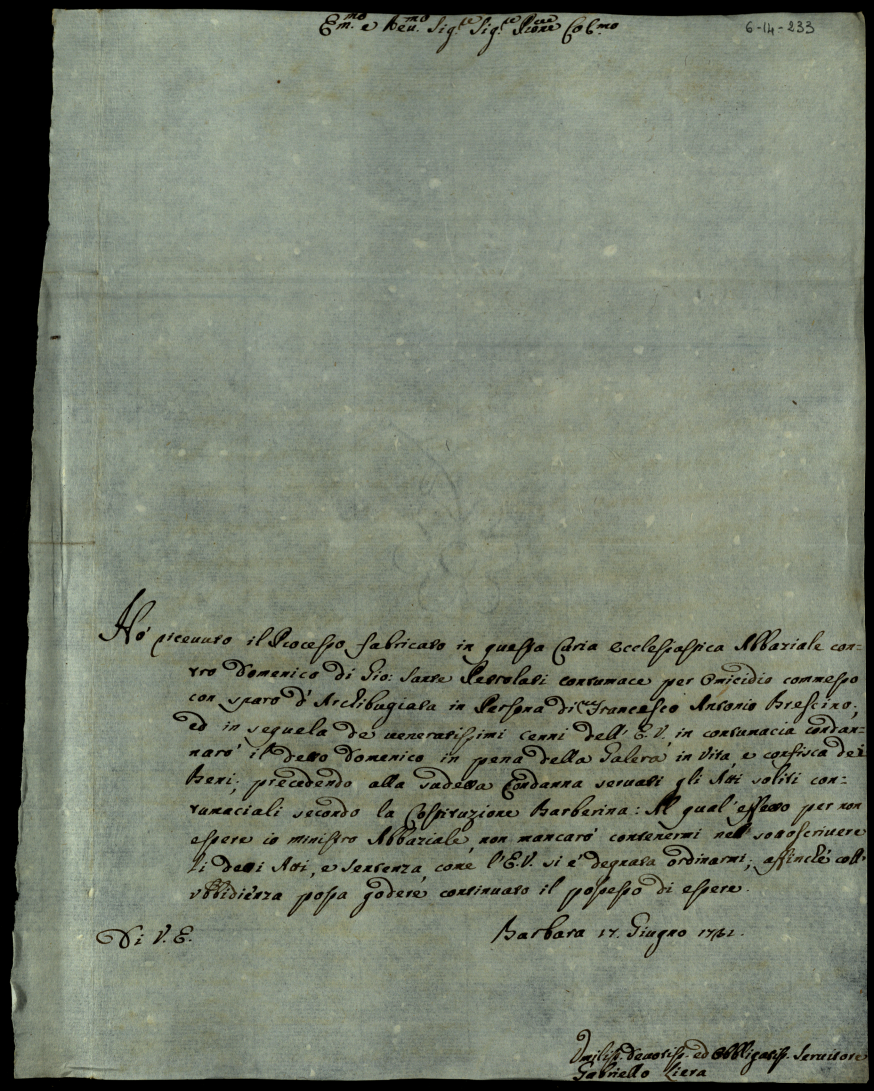 6-14-233
Em.mo e Rev.mo Sig.re Sig.re P̃rone Col.mo
Hò riceuuto il Processo fabricato in questa Curia Ecclesiastica Abbaziale con=
tro Domenico di Gio: Sante Petrolati contumace per Omicidio commesso
con sparo d'Archibugiata in Persona di Francesco Antonio Brescino;
ed in sequela de ueneratissimi cenni dell'E.V. in contumacia condan=
narò il detto Domenico in pena della Galera in Vita, e confisca dei
Beni; precedendo alla sudetta Condanna seruati gli Atti soliti con=
tumaciali secondo la Costituzione Barberina: Al qual'effetto per non
essere io Ministro Abbaziale, non mancarò contenermi nell'sottoscriuere
li detti Atti, e sentenza, come l'E.V. si è degnata ordinarmi; affinché coll'
ubbidienza possa godere continuato il possesso di essere
Di V. E. Barbara 17. Giugno
Umiliss. Deuotiss. ed Obbligatiss. Seruitore
Gabriello Liera